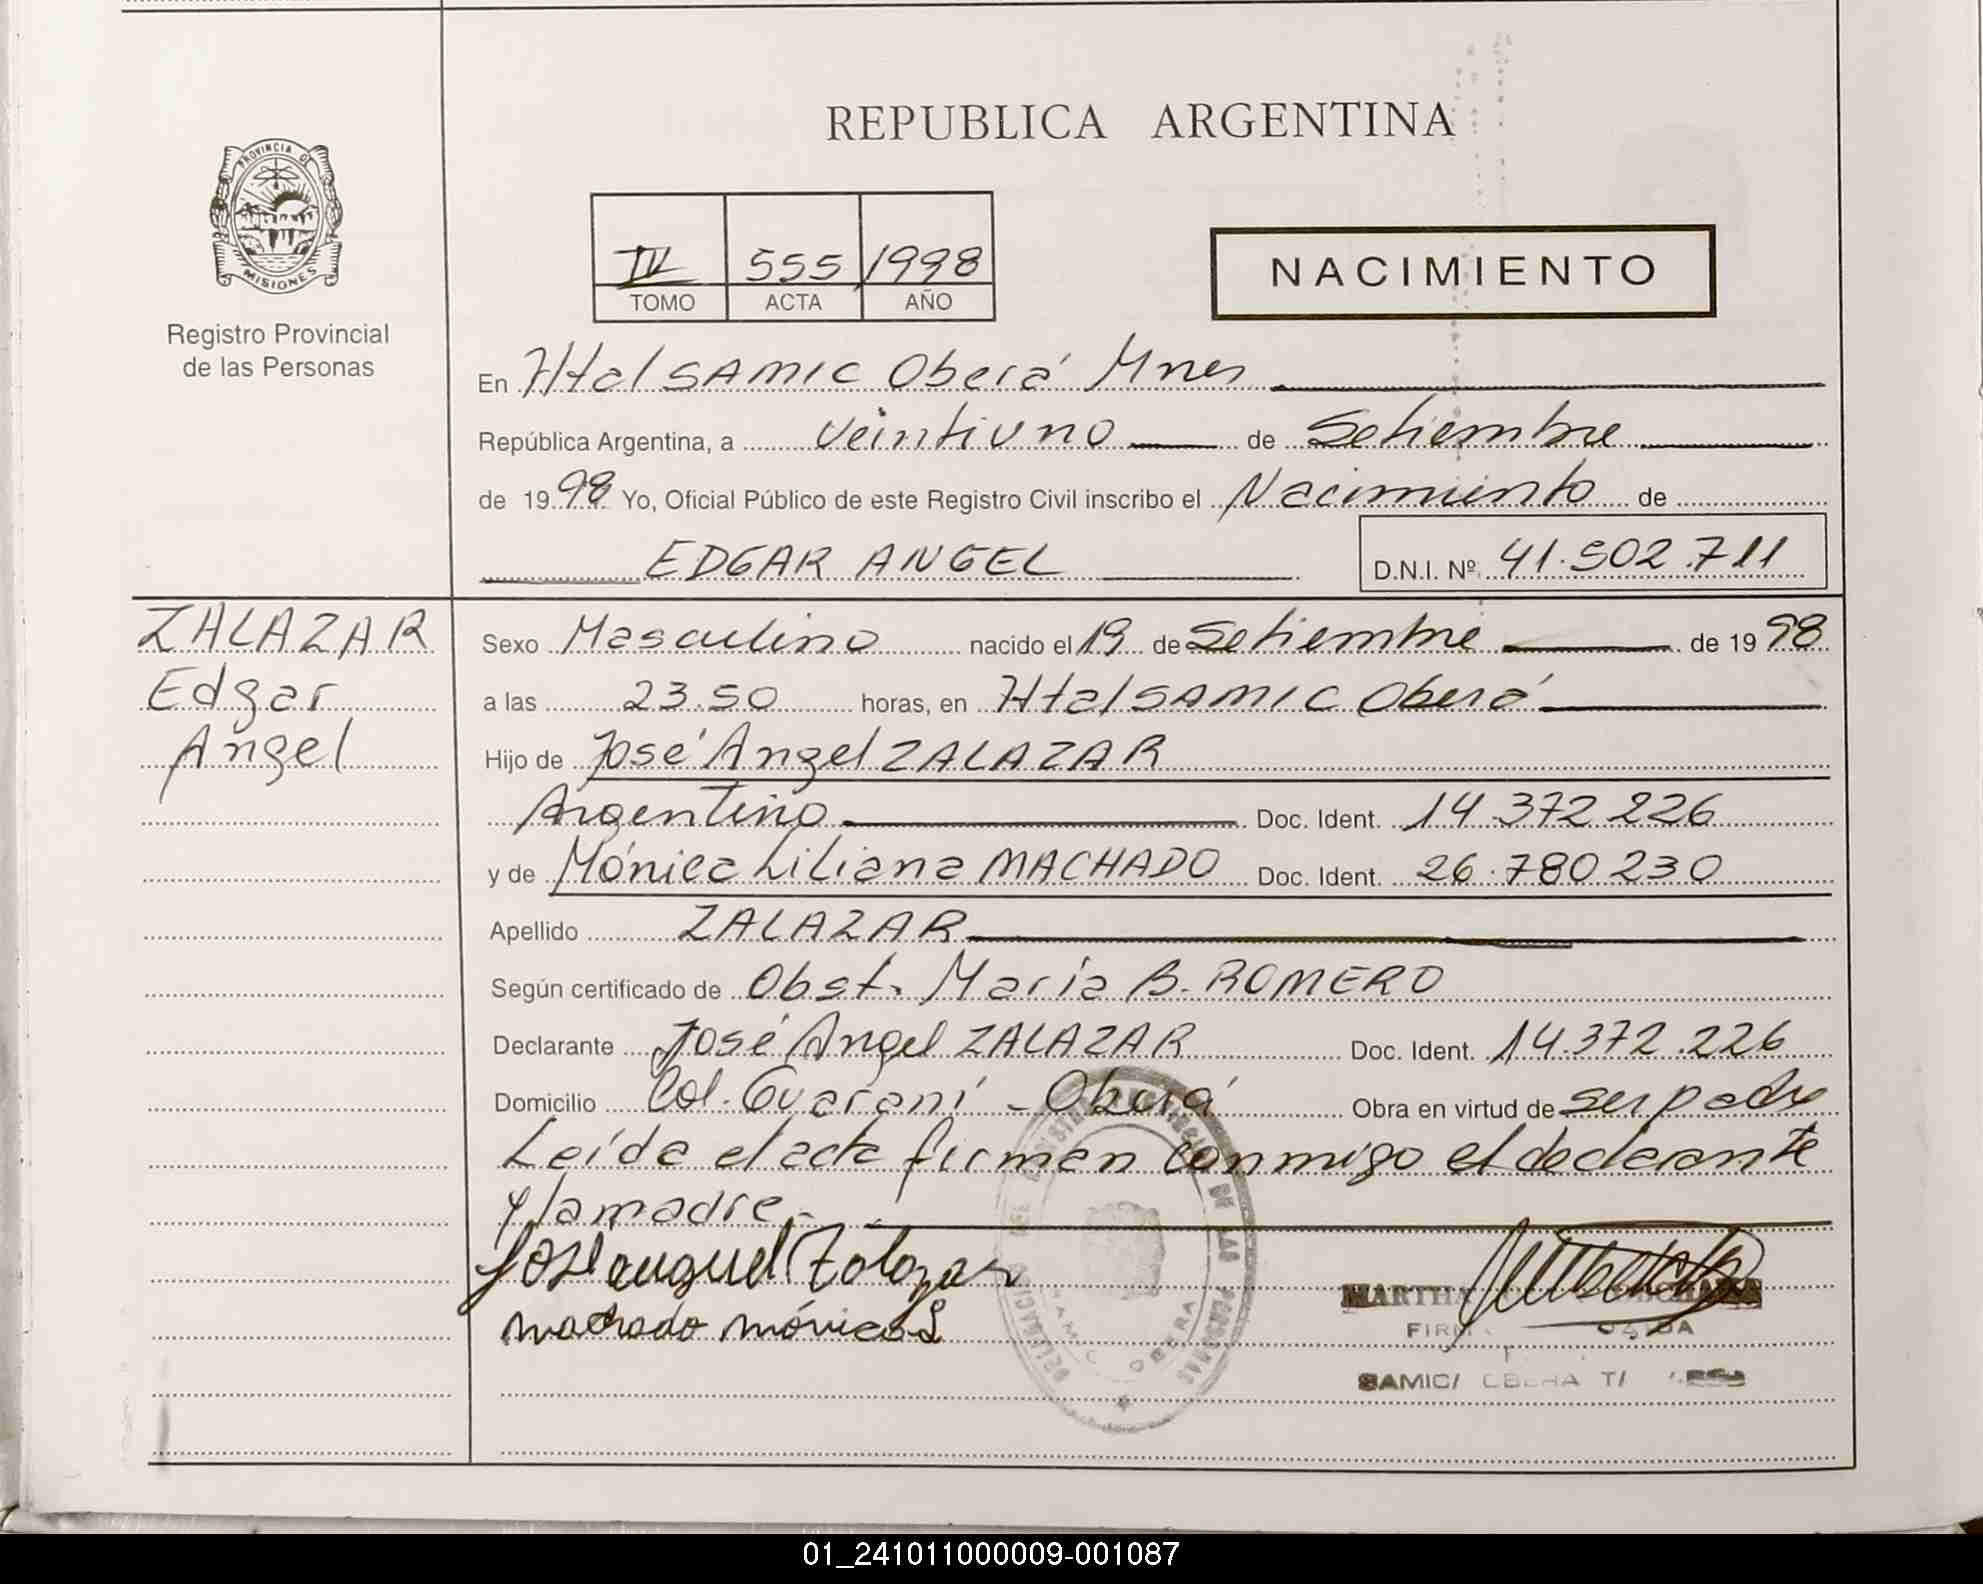 REPUBLICA ARGENTINA
PROVINCIA DE
MISIONES
Registro Provincial
de las Personas
IV 555 1998
TOMO ACTA AÑO
NACIMIENTO
En Htal SAMIC Oberá Mnes
República Argentina, a veintiuno de Setiembre
de 1998 Yo, Oficial Público de este Registro Civil inscribo el Nacimiento de
EDGAR ANGEL D.N.I. Nº 41.502.711
ZALAZAR
Edgar
Angel
Sexo Masculino nacido el 19 de Setiembre de 1998
a las 23.50 horas, en Htal SAMIC Oberá
Hijo de José Angel ZALAZAR
Argentino Doc. Ident. 14.372.226
y de Mónica Liliana MACHADO Doc. Ident. 26.780.230
Apellido ZALAZAR
Según certificado de Obst. María B. ROMERO
Declarante José Angel ZALAZAR Doc. Ident. 14.372.226
Domicilio Col. Guaraní - Oberá Obra en virtud de ser padre
Leída el acta firman conmigo el declarante
y la madre.-
José anguel Zalazar
machado mónica L
MARTHA
SAMIC/
01_241011000009-001087